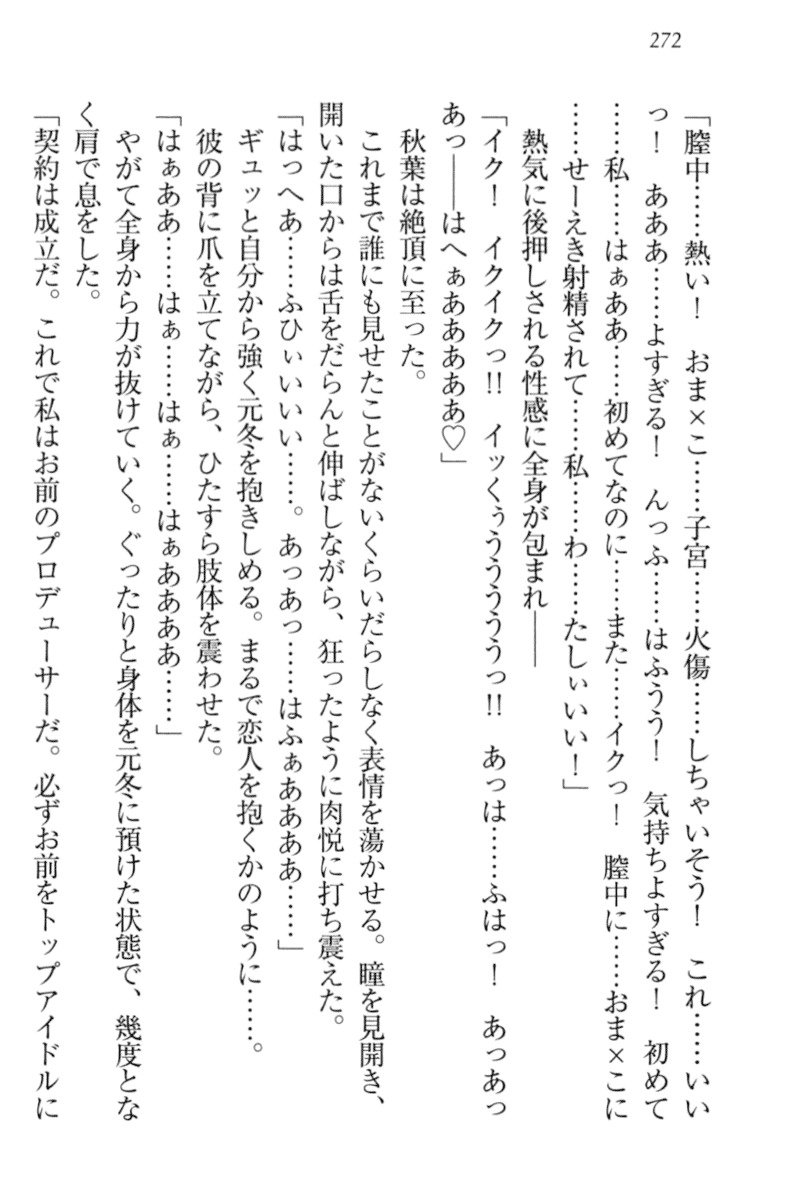 272
「膣中……熱い！　おま×こ……子宮……火傷……しちゃいそう！　これ……いい
っ！　あああ……よすぎる！　んっふ……はふうう！　気持ちよすぎる！　初めて
……私……はぁああ……初めてなのに……また……イクっ！　膣中に……おま×こに
……せーえき射精されて……私……わ……たしぃいい！」
熱気に後押しされる性感に全身が包まれ――
「イク！　イクイクっ!!　イッくぅううううっ!!　あっは……ふはっ！　あっあっ
あっ――はへぁあああああ♡」
秋葉は絶頂に至った。
これまで誰にも見せたことがないくらいだらしなく表情を蕩かせる。瞳を見開き、
開いた口からは舌をだらんと伸ばしながら、狂ったように肉悦に打ち震えた。
「はっへあ……ふひぃいいい……。あっあっ……はふぁああああ……」
ギュッと自分から強く元冬を抱きしめる。まるで恋人を抱くかのように……。
彼の背に爪を立てながら、ひたすら肢体を震わせた。
「はぁああ……はぁ……はぁ……はぁああああ……」
やがて全身から力が抜けていく。ぐったりと身体を元冬に預けた状態で、幾度とな
く肩で息をした。
「契約は成立だ。これで私はお前のプロデューサーだ。必ずお前をトップアイドルに